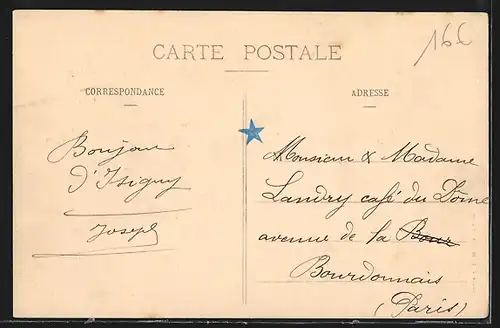 16C
CARTE POSTALE
CORRESPONDANCE
ADRESSE
Bonjour
d'Isigny
Joseph
Monsieur & Madame
Landry café du Dôme
avenue de la Bour
Bourdonnais
(Paris)